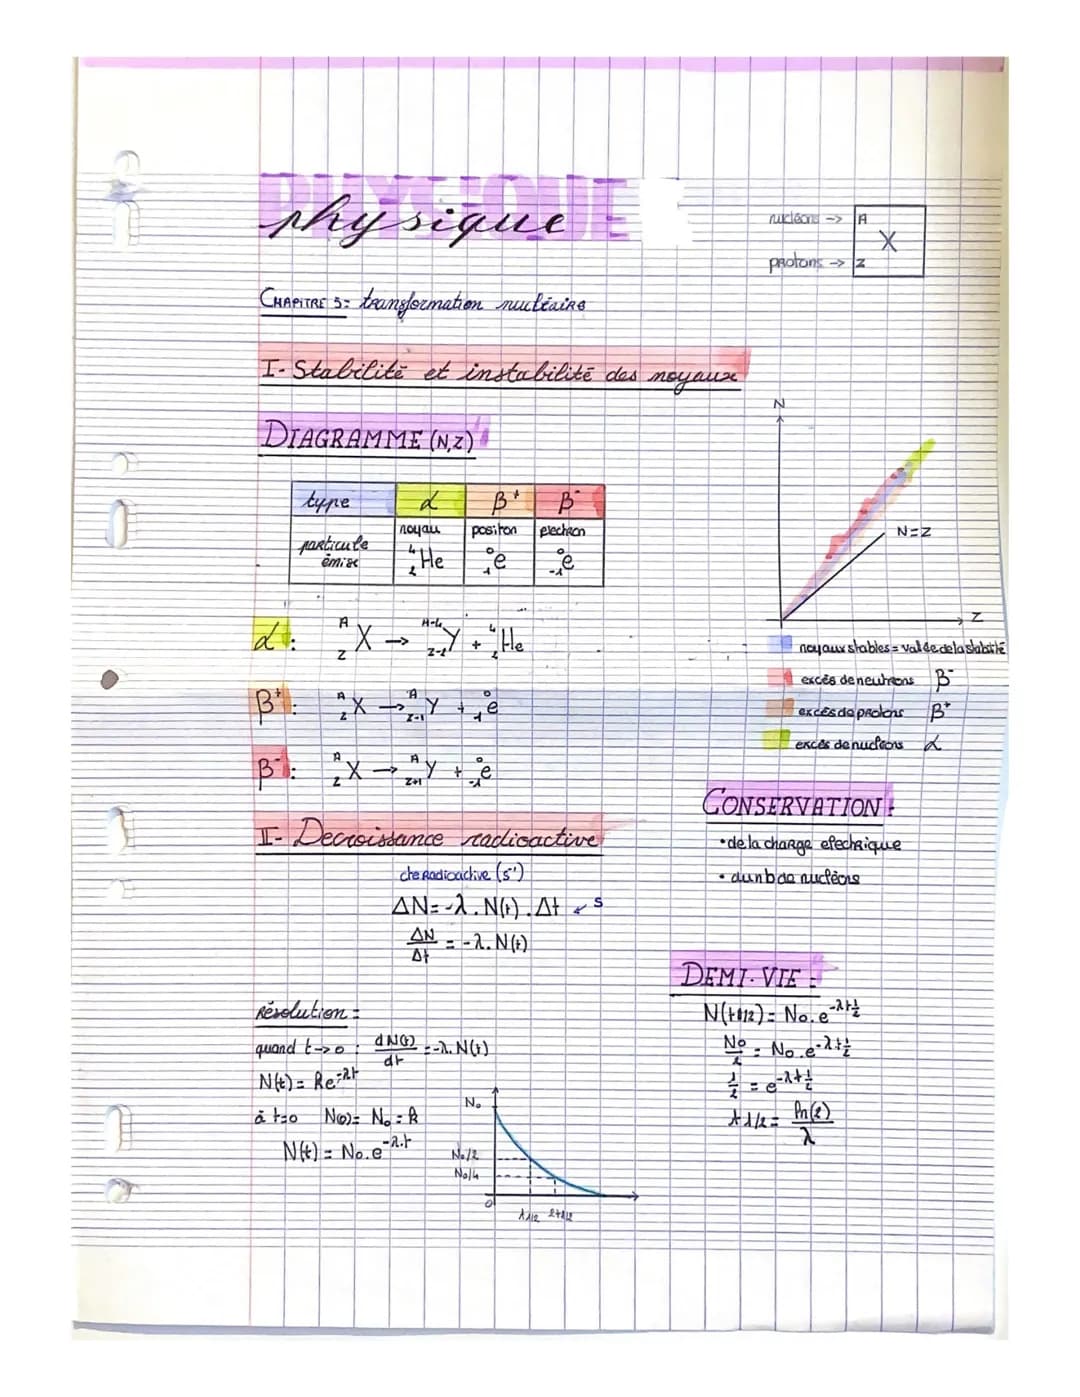 PHYSIQUE
physique
nucléons -> A
X
protons -> Z
CHAPITRE 5: transformation nucléaire
I- Stabilité et instabilité des noyaux
DIAGRAMME (N,Z)
type α β⁺ β⁻
particule émise
noyau ⁴₂He
positon ⁰₁e
électron ⁰₋₁e
α : ᴬ_Z X → ᴬ⁻⁴_Z-2 Y + ⁴₂He
β⁺ : ᴬ_Z X → ᴬ_Z-1 Y + ⁰₁e
β⁻ : ᴬ_Z X → ᴬ_Z+1 Y + ⁰₋₁e
N
N=Z
Z
noyaux stables = vallée de la stabilité
excès de neutrons β⁻
excès de protons β⁺
excès de nucléons α
CONSERVATION :
• de la charge électrique
• du nb de nucléons
II- Decroissance radioactive
cte Radioactive (s⁻¹)
ΔN = -λ . N(t) . Δt ← s
ΔN/Δt = -λ. N(t)
Résolution :
quand t->0 : dN(t)/dt = -λ. N(t)
N(t) = Ke⁻λt
à t=0 N(0) = N₀ = K
N(t) = N₀.e⁻λ.t
N₀
N₀/2
N₀/4
0
t1/2 2t1/2
DEMI-VIE :
N(t1/2) = N₀.e⁻λt½
N₀/2 = N₀.e⁻λt½
1/2 = e⁻λt½
t1/2 = ln(2)/λ